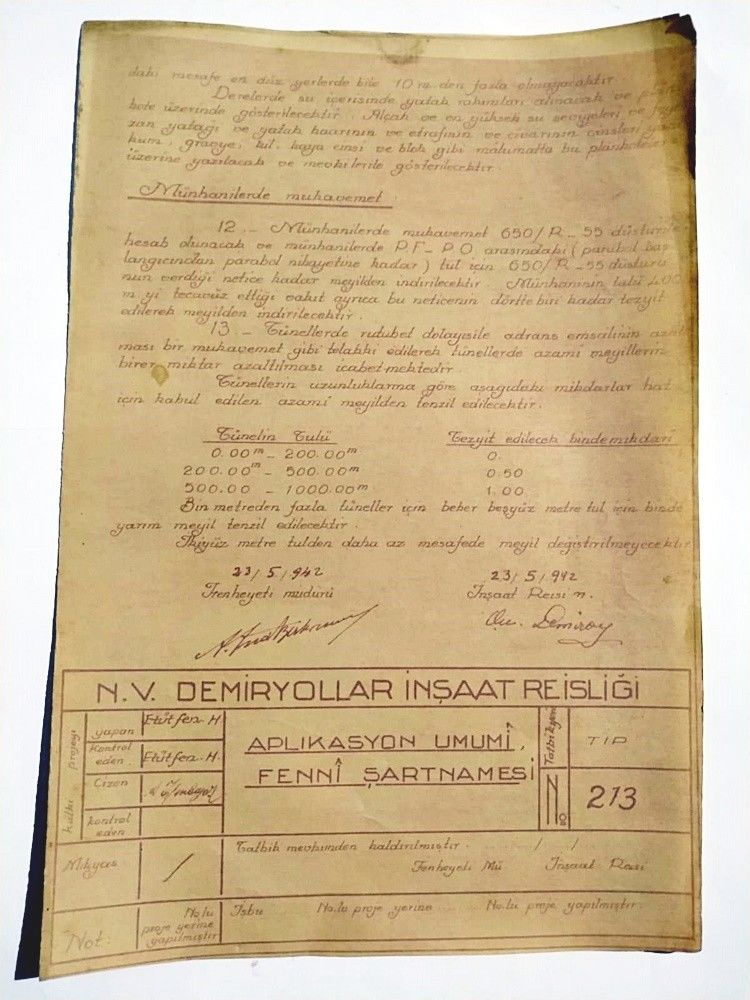 daki mesafe en düz yerlerde bile 10 m. den fazla olmayacaktır.
Derelerde su içerisinde yatak rakımları alınacak ve
kote üzerinde gösterilecektir. Alçak ve en yüksek su seviyeleri ve
yatağı ve yatak kenarının ve etrafının ve civarının cinsleri
kum, graviye, tul, kaya cinsi ve blok gibi malumatta bu plankoteler
üzerine yazılacak ve mevkilerile gösterilecektir.
Münhanilerde mukavemet
12.- Münhanilerde mukavemet 650/R-55 düsturile
hesab olunacak ve münhanilerde P.F-P.O. arasındaki (parabol baş
langıcından parabol nihayetine kadar) tul için 650/R-55 düsturu
nun verdiği netice kadar meyilden indirilecektir. Münhaninin tulü 400
m yi tecavüz ettiği vakit ayrıca bu neticenin dörtte biri kadar tezyit
edilerek meyilden indirilecektir.
13.- Tünellerde rutubet dolayısile adrans emsalinin azal
ması bir mukavemet gibi telakki edilerek tünellerde azami meyillerin
birer miktar azaltılması icabetmektedir.
Tünellerin uzunluklarına göre aşağıdaki mikdarlar hat
için kabul edilen azamî meyilden tenzil edilecektir.
Tünelin Tulü Tezyit edilecek binde mikdarı
0.00m - 200.00m 0.
200.00m - 500.00m 0.50
500.00 - 1000.00m 1.00
Bin metreden fazla tüneller için beher beşyüz metre tul için binde
yarım meyil tenzil edilecektir.
İkiyüz metre tulden daha az mesafede meyil değiştirilmeyecektir.
23/5/942 23/5/942
Fenheyeti müdürü İnşaat Reisi n.
Demiray
N.V. DEMİRYOLLAR İNŞAAT REİSLİĞİ
Kâtki projeyi
yapan Etüt fen. H.
Kontrol eden. Etüt fen. H.
Çizen
kontrol eden
APLIKASYON UMUMÎ,
FENNÎ ŞARTNAMESİ
Tatbikyeri TİP
No 213
Mikyas /
Tatbik mevkiinden kaldırılmıştır. / /
Fenheyeti Mü İnşaat Reisi
Not: No.lu proje yerine yapılmıştır
İşbu No.lu proje yerine No.lu proje yapılmıştır.